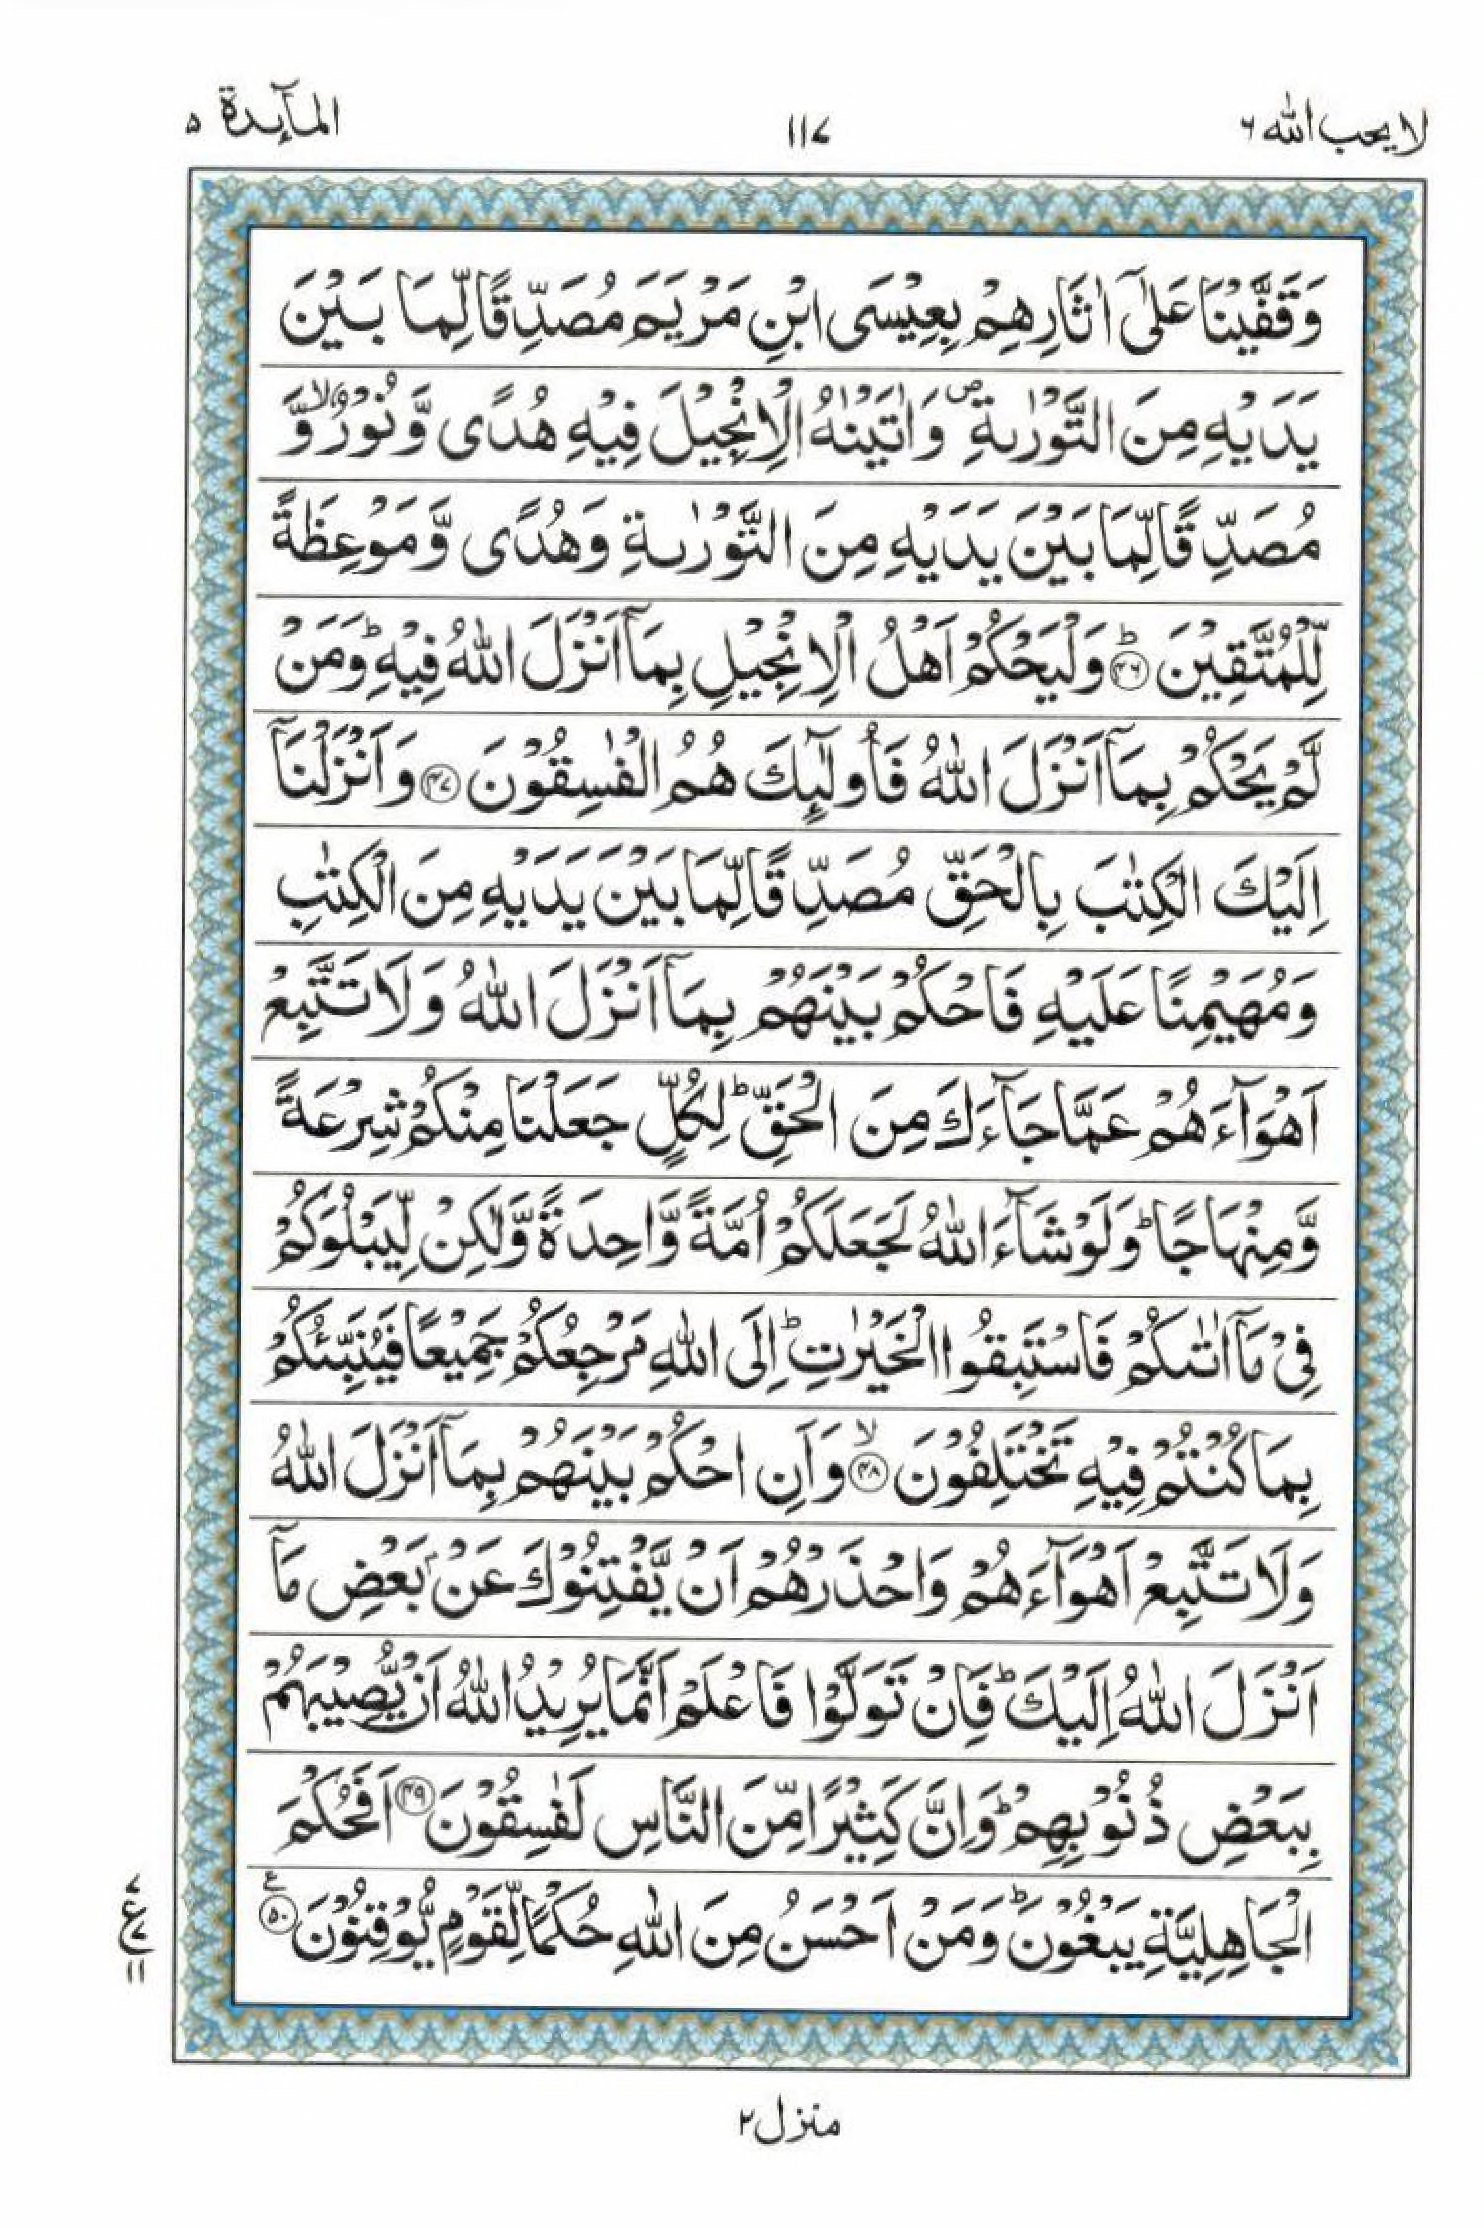 لا يحب الله ٦
١١٧
المآئدة ٥
وَقَفَّيْنَا عَلٰۤى اٰثَارِهِمْ بِعِيْسَى ابْنِ مَرْيَمَ مُصَدِّقًا لِّمَا بَيْنَ
يَدَيْهِ مِنَ التَّوْرٰىةِ ۪ وَاٰتَيْنٰهُ الْاِنْجِيْلَ فِيْهِ هُدًى وَّنُوْرٌ ۙ وَّ
مُصَدِّقًا لِّمَا بَيْنَ يَدَيْهِ مِنَ التَّوْرٰىةِ وَهُدًى وَّمَوْعِظَةً
لِّلْمُتَّقِيْنَ ؕ﴿۴۶﴾ وَلْيَحْكُمْ اَهْلُ الْاِنْجِيْلِ بِمَاۤ اَنْزَلَ اللّٰهُ فِيْهِ ؕ وَمَنْ
لَّمْ يَحْكُمْ بِمَاۤ اَنْزَلَ اللّٰهُ فَاُولٰٓئِكَ هُمُ الْفٰسِقُوْنَ ﴿۴۷﴾ وَاَنْزَلْنَاۤ
اِلَيْكَ الْكِتٰبَ بِالْحَقِّ مُصَدِّقًا لِّمَا بَيْنَ يَدَيْهِ مِنَ الْكِتٰبِ
وَمُهَيْمِنًا عَلَيْهِ فَاحْكُمْ بَيْنَهُمْ بِمَاۤ اَنْزَلَ اللّٰهُ وَلَا تَتَّبِعْ
اَهْوَآءَهُمْ عَمَّا جَآءَكَ مِنَ الْحَقِّ ؕ لِكُلٍّ جَعَلْنَا مِنْكُمْ شِرْعَةً
وَّمِنْهَاجًا ؕ وَلَوْ شَآءَ اللّٰهُ لَجَعَلَكُمْ اُمَّةً وَّاحِدَةً وَّلٰكِنْ لِّيَبْلُوَكُمْ
فِيْ مَاۤ اٰتٰىكُمْ فَاسْتَبِقُوا الْخَيْرٰتِ ؕ اِلَى اللّٰهِ مَرْجِعُكُمْ جَمِيْعًا فَيُنَبِّئُكُمْ
بِمَا كُنْتُمْ فِيْهِ تَخْتَلِفُوْنَ ۙ﴿۴۸﴾ وَاَنِ احْكُمْ بَيْنَهُمْ بِمَاۤ اَنْزَلَ اللّٰهُ
وَلَا تَتَّبِعْ اَهْوَآءَهُمْ وَاحْذَرْهُمْ اَنْ يَّفْتِنُوْكَ عَنْۢ بَعْضِ مَاۤ
اَنْزَلَ اللّٰهُ اِلَيْكَ ؕ فَاِنْ تَوَلَّوْا فَاعْلَمْ اَنَّمَا يُرِيْدُ اللّٰهُ اَنْ يُّصِيْبَهُمْ
بِبَعْضِ ذُنُوْبِهِمْ ؕ وَاِنَّ كَثِيْرًا مِّنَ النَّاسِ لَفٰسِقُوْنَ ﴿۴۹﴾ اَفَحُكْمَ
الْجَاهِلِيَّةِ يَبْغُوْنَ ؕ وَمَنْ اَحْسَنُ مِنَ اللّٰهِ حُكْمًا لِّقَوْمٍ يُّوْقِنُوْنَ ﴿۵۰﴾ ع
٧
ع ٧
١١
منزل ٢